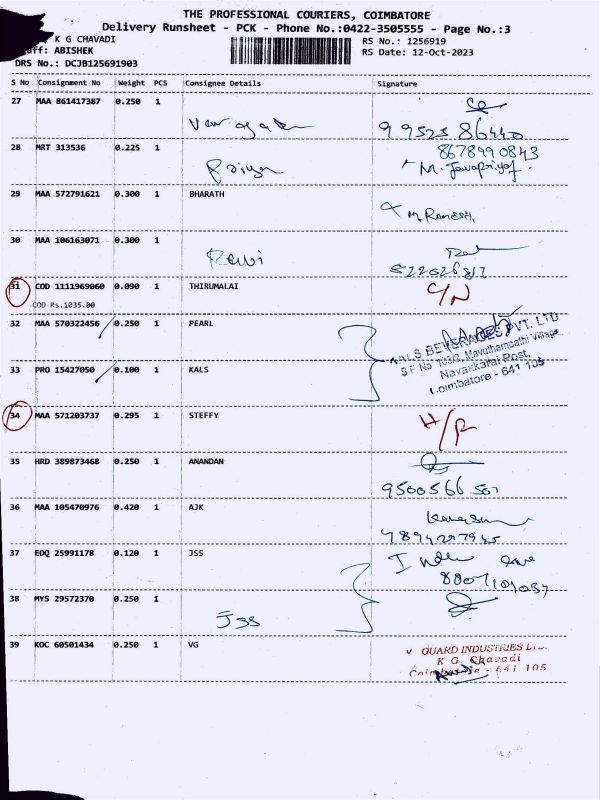 THE PROFESSIONAL COURIERS, COIMBATORE
Delivery Runsheet - PCK - Phone No.:0422-3505555 - Page No.:3
K G CHAVADI
RS No.: 1256919
ABISHEK
RS Date: 12-Oct-2023
DRS No.: DCJB125691903
S No Consignment No Weight PCS Consignee Details Signature
27 MAA 861417387 0.250 1
99523 86440
28 MRT 313536 0.225 1 Priya
8678990843
M. Jayapriya
29 MAA 572791621 0.300 1 BHARATH
M Ramesh
30 MAA 106163071 0.300 1 Ravi
31 COD 1111969060 0.090 1 THIRUMALAI C/N
COD Rs.1035.00
32 MAA 570322456 0.250 1 PEARL
KALS BEVERAGES PVT. LTD
S F No 103/2, Mavuthampathi Village,
33 PRO 15427050 0.100 1 KALS
Navakkarai Post,
Coimbatore - 641 105
34 MAA 571203737 0.295 1 STEFFY H/R
35 HRD 389873468 0.250 1 ANANDAN
9500566 507
36 MAA 105470976 0.420 1 AJK
37 EDQ 25991178 0.120 1 JSS
38 MYS 29572370 0.250 1 JSS
39 KOC 60501434 0.250 1 VG
V GUARD INDUSTRIES LTD.
K G. Chavadi
Coimbatore - 641 105